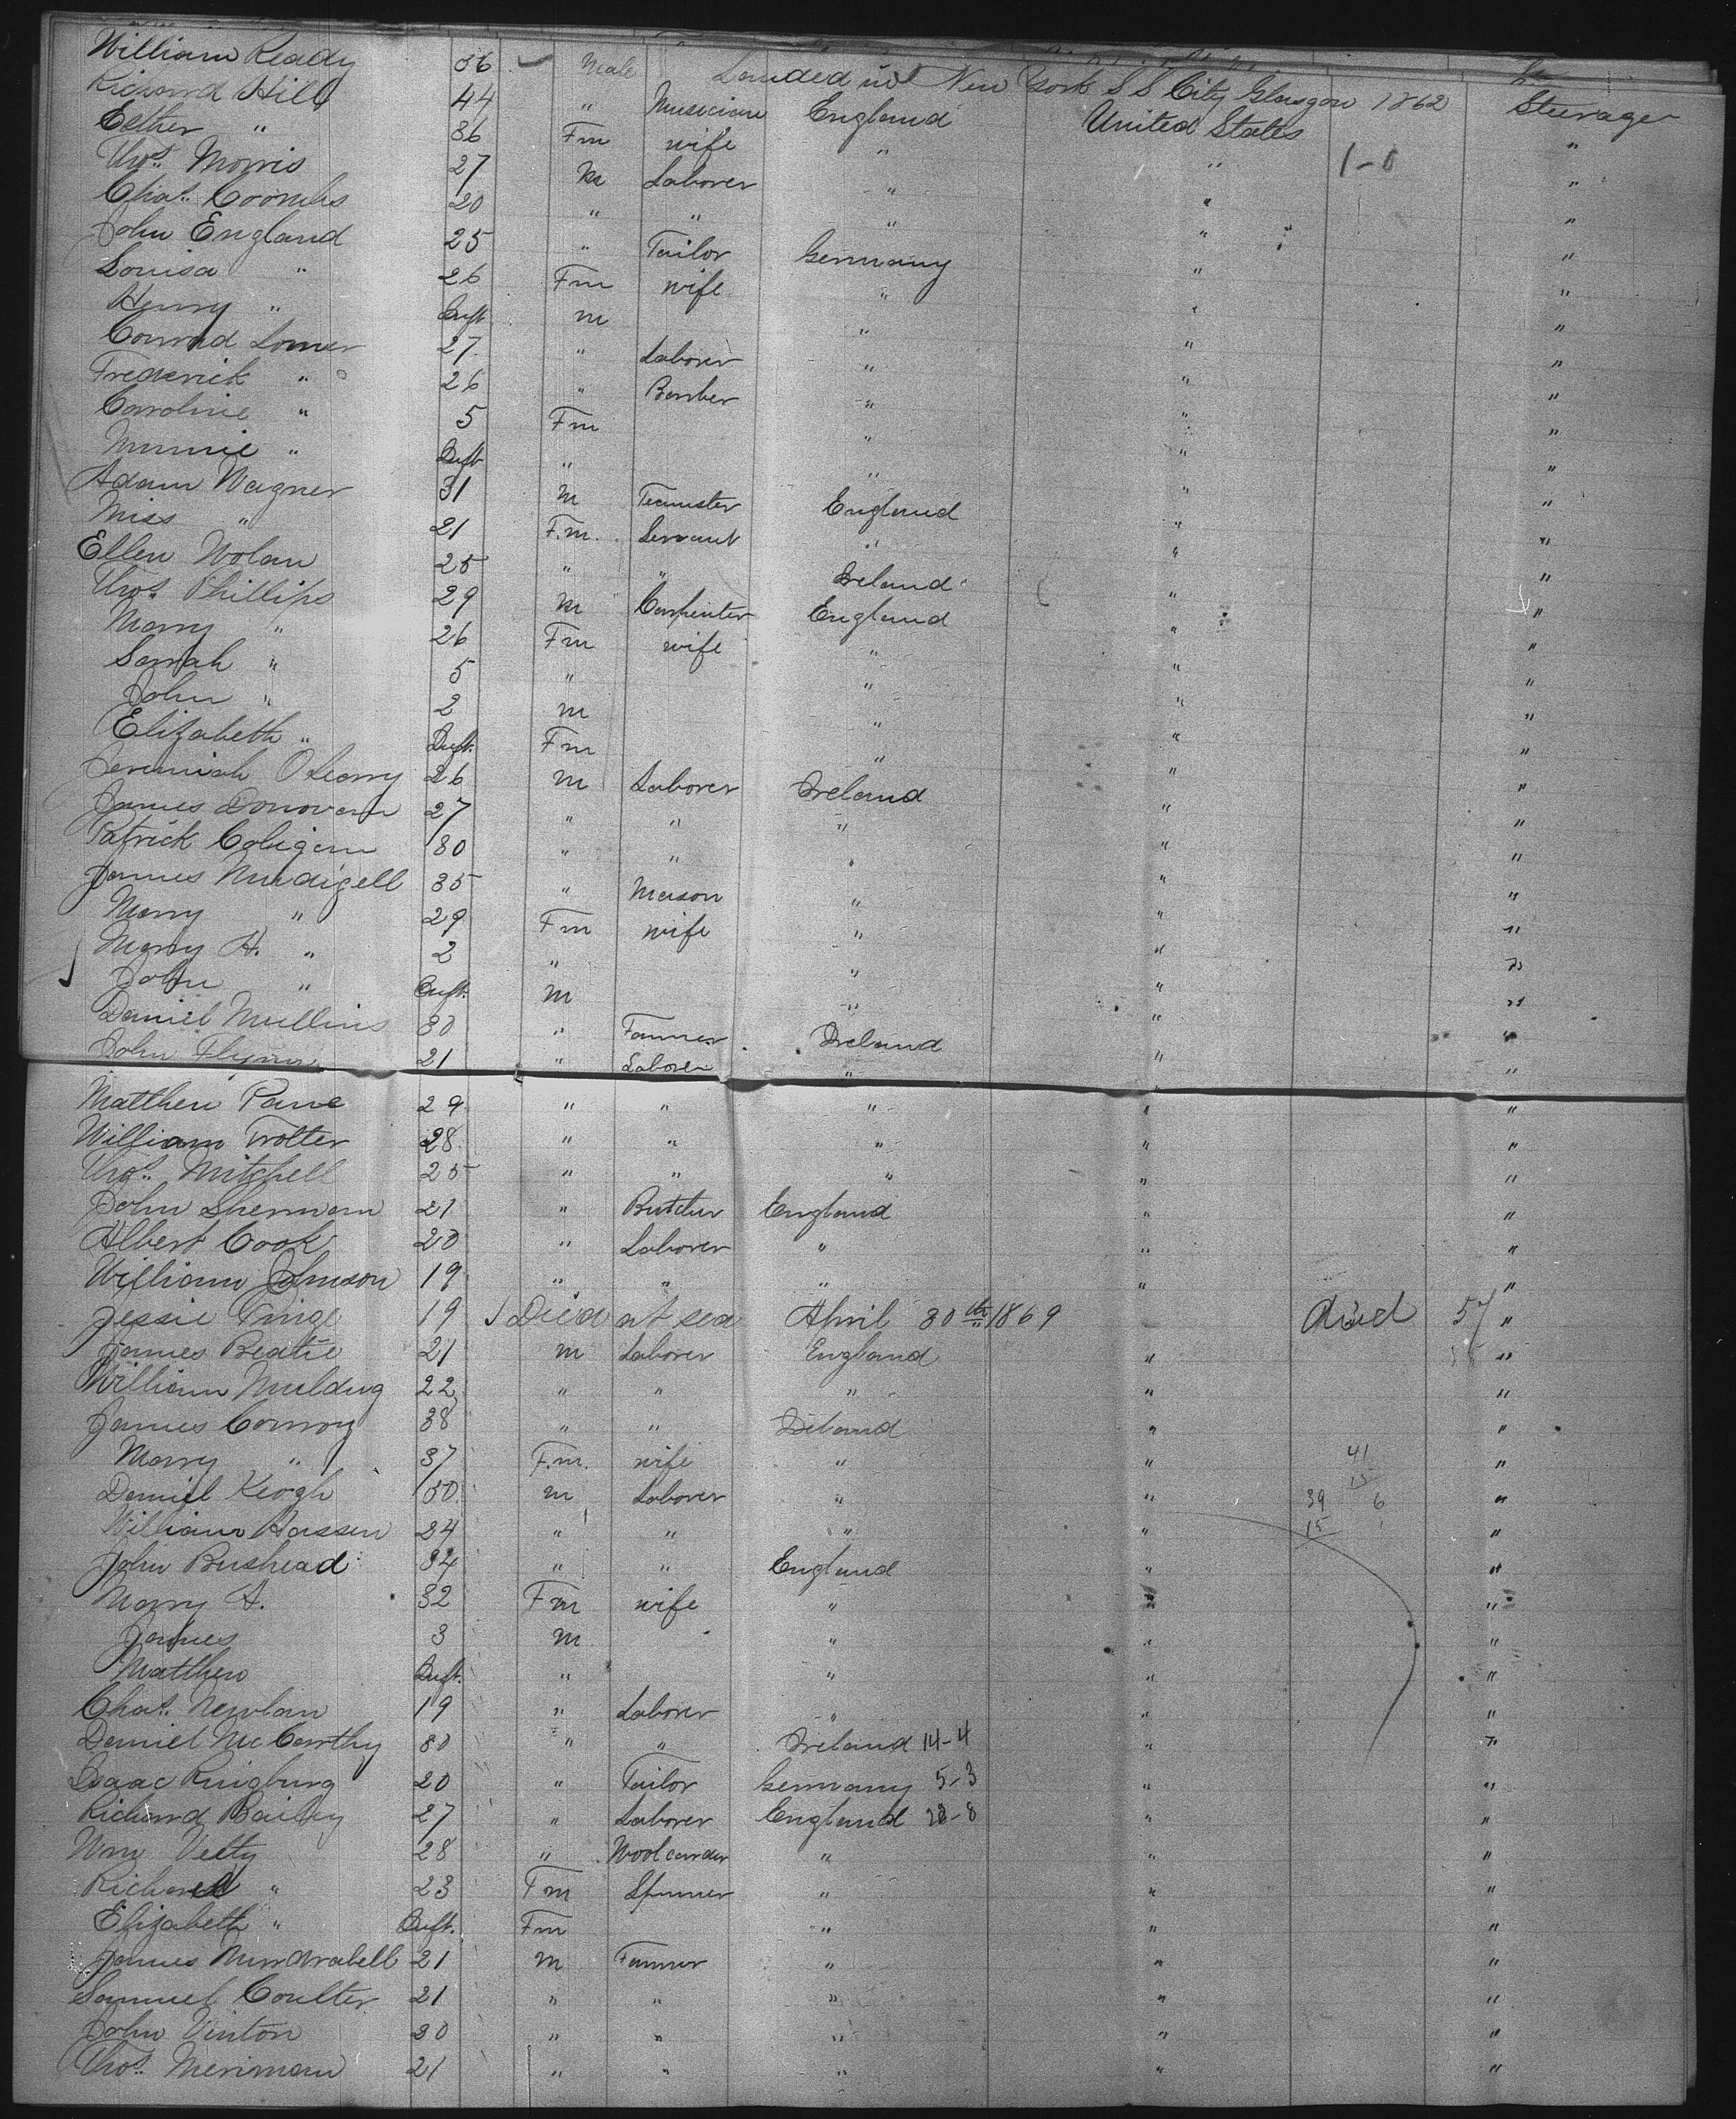 William Ready 36 Male Landed in New York S S City Glasgow 1862
Richard Hill 44 " Musician England United States Steerage
Esther " 36 Fm wife " " 1-0 "
Thos. Morris 27 m Laborer " " "
Chas. Coombs 20 " " " " "
John England 25 " Tailor Germany " "
Louisa " 26 Fm wife " " "
Henry " Inft m " " "
Conrad Lomer 27 " Laborer " " "
Frederick " 26 " Barber " " "
Caroline " 5 Fm " " "
Minnie " Inft " " " "
Adam Wagner 31 m Teamster England " "
Miss " 21 F.m. Servant " " "
Ellen Nolan 25 " " Ireland " "
Thos. Phillips 29 m Carpenter England " "
Mary " 26 Fm wife " " "
Sarah " 5 " " " "
John " 2 m " " "
Elizabeth " Inft. Fm " " "
Jeremiah O Leary 26 m Laborer Ireland " "
James Donovan 27 " " " " "
Patrick 30 " " " " "
James 35 " Mason " " "
Mary " 29 Fm wife " " "
Mary A. " 2 " " " "
John " Inft. m " " "
Daniel Mullins 30 " Farmer Ireland " "
John Flynn 21 " Laborer " " "
Matthew Pane 29 " " " " "
William Trotter 28 " " " " "
Thos. Mitchell 25 " " " " "
John Sherman 21 " Butcher England " "
Albert Cook 20 " Laborer " " "
William Johnson 19 " " " " "
Jessie 19 Died at sea April 30th 1869 died 57 "
James Beatie 21 m Laborer England " "
William 22 " " " " "
James Conroy 38 " " Ireland " "
Mary " 37 F.m. wife " " 41 "
Daniel Keogh 50 m Laborer " " 39 15 6 "
William Hassen 24 " " " " 15 "
John Bushead 34 " " England " "
Mary A. 32 Fm wife " " "
James 3 m " " "
Matthew Inft. " " " "
Chas. Newlan 19 " Laborer " " "
Daniel McCarthy 30 " " Ireland 14-4 " "
Isaac Ringburg 20 " Tailor Germany 5-3 " "
Richard Bailey 27 " Laborer England 28-8 " "
Wm Vetty 28 " Wool carder " " "
Richard " 23 Fm Spinner " " "
Elizabeth " Inft. Fm " " "
James 21 m Farmer " " "
Samuel Coulter 21 " " " " "
John Vinton 20 " " " " "
Thos. Meriman 21 " " " " "